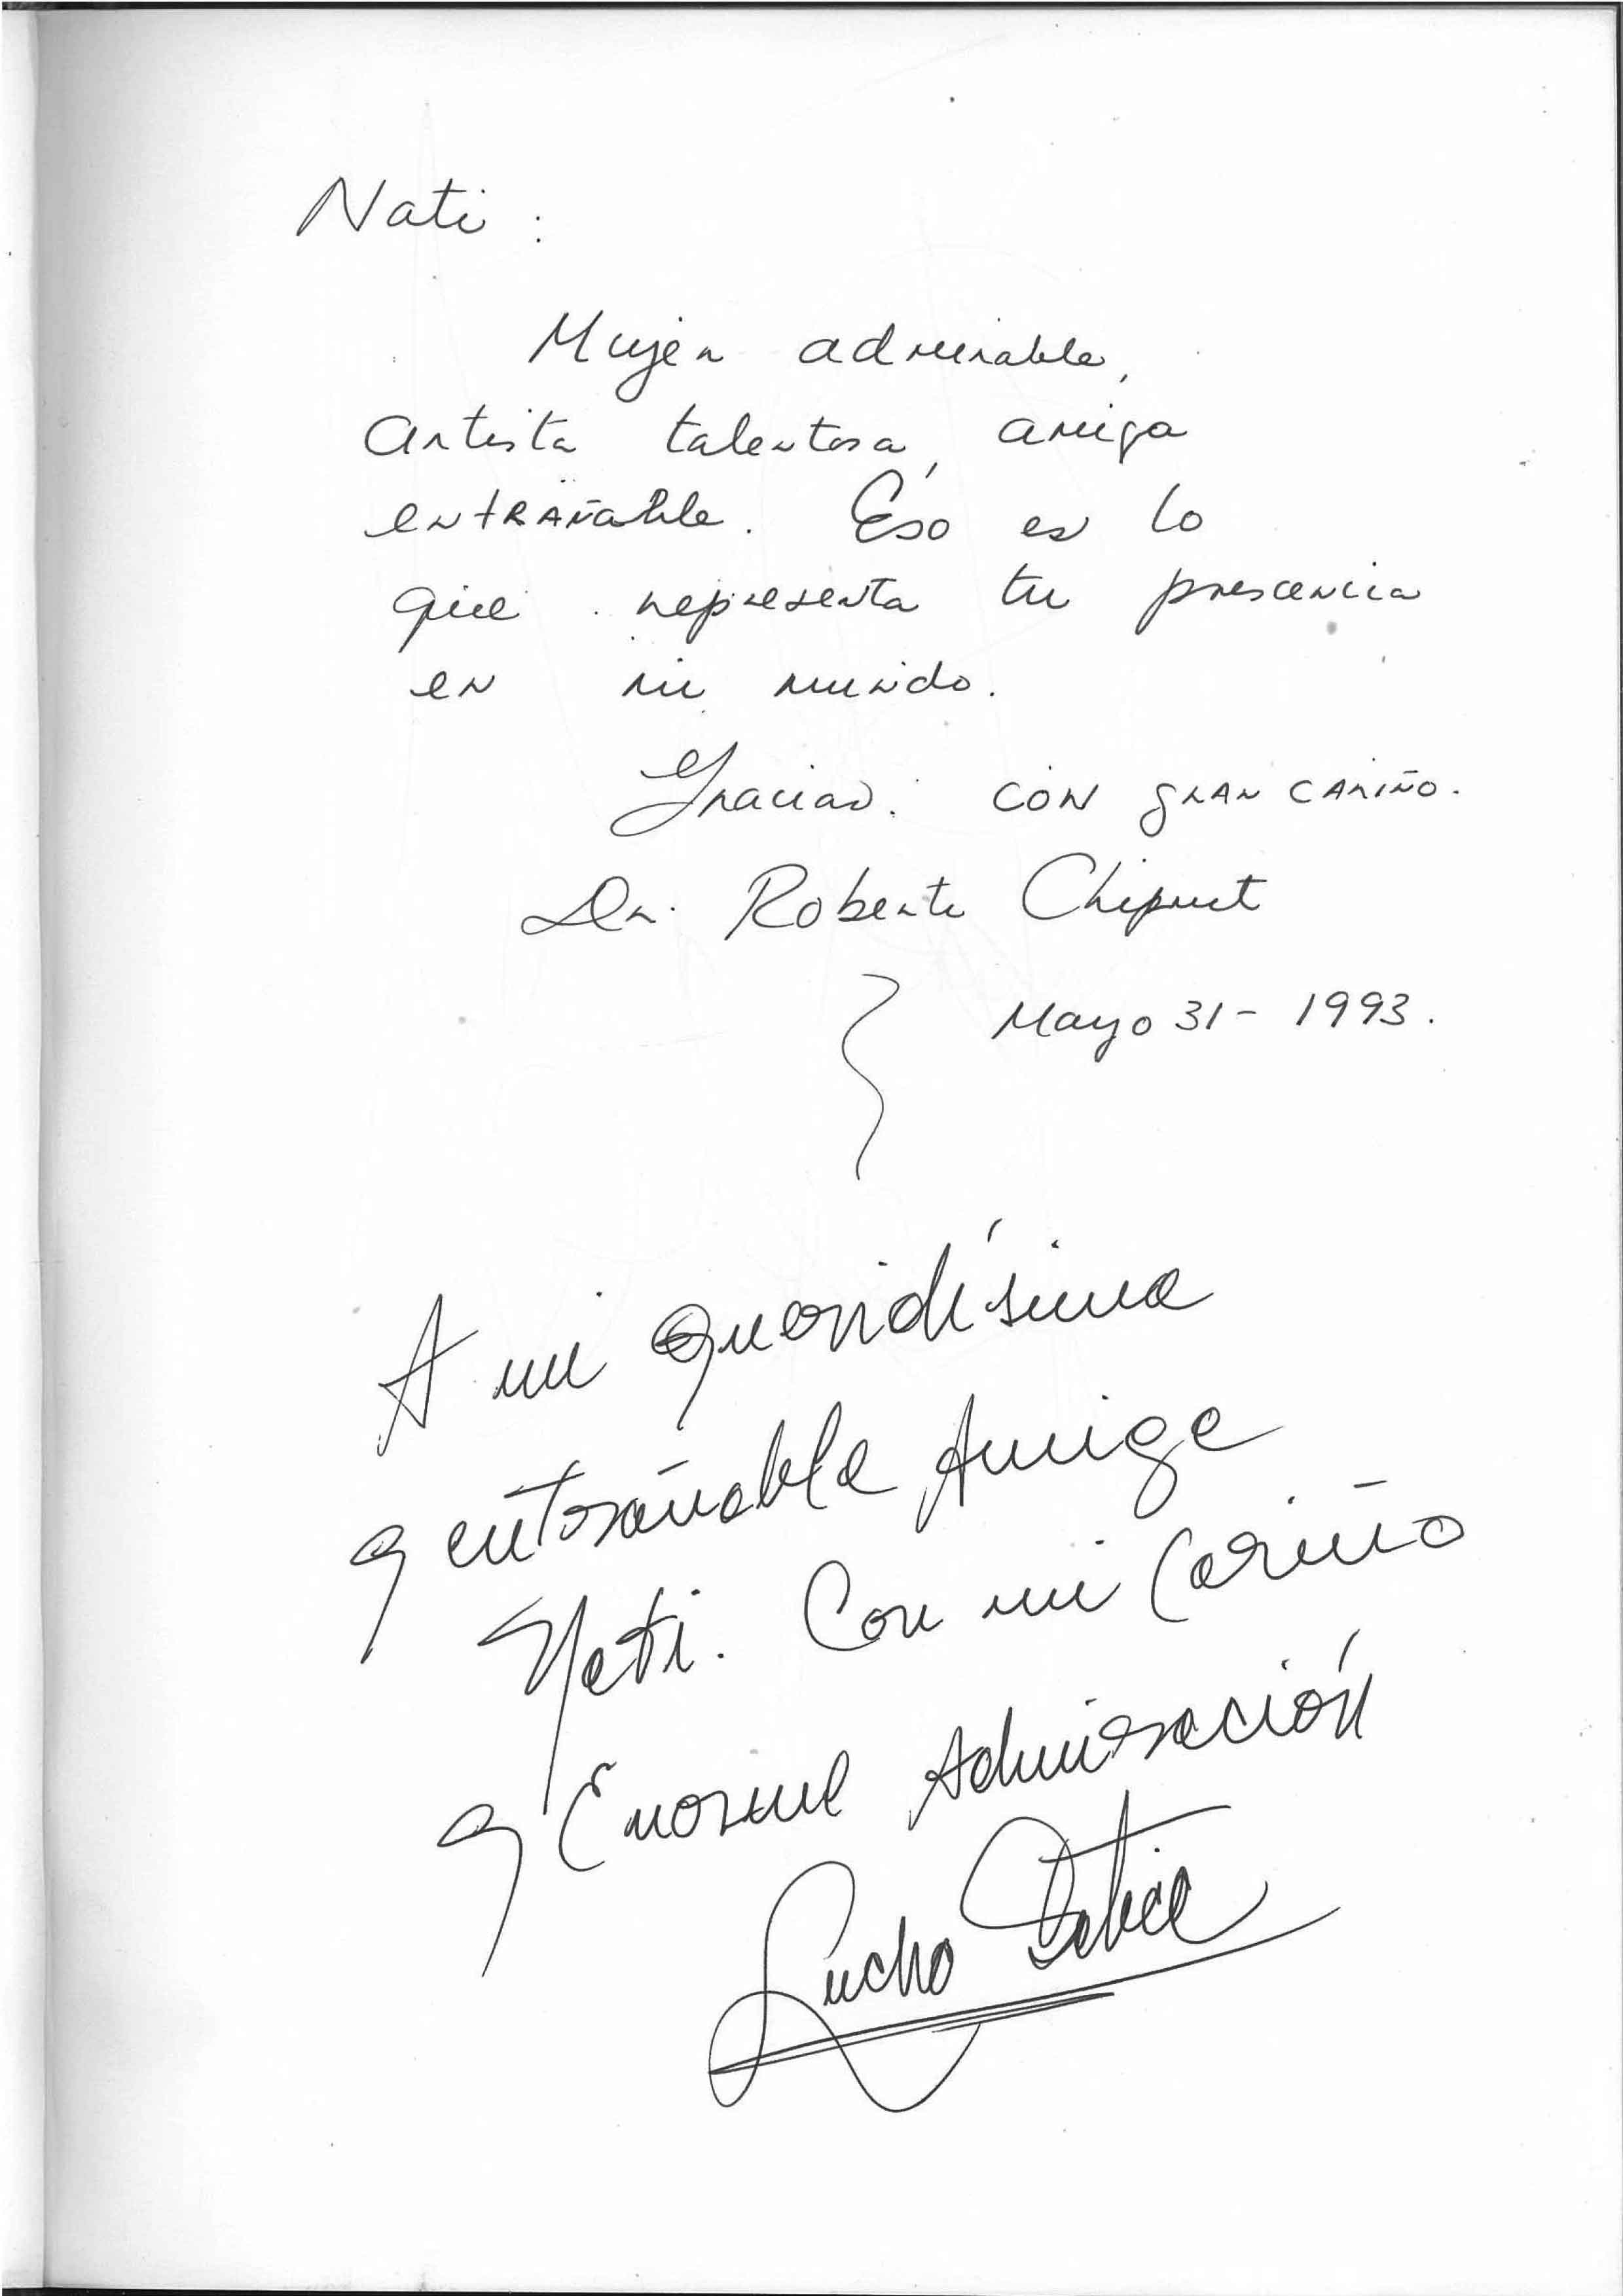 Nati :
Mujer admirable,
artista talentosa, amiga
entrañable. Eso es lo
que representa tu prescencia
en mi mundo.
Gracias. con gran cariño.
Dr. Roberto
Mayo 31 - 1993.
A mi queridísima
y entrañable Amiga
Nati. Con mi Cariño
y Enorme Admiración
Lucho